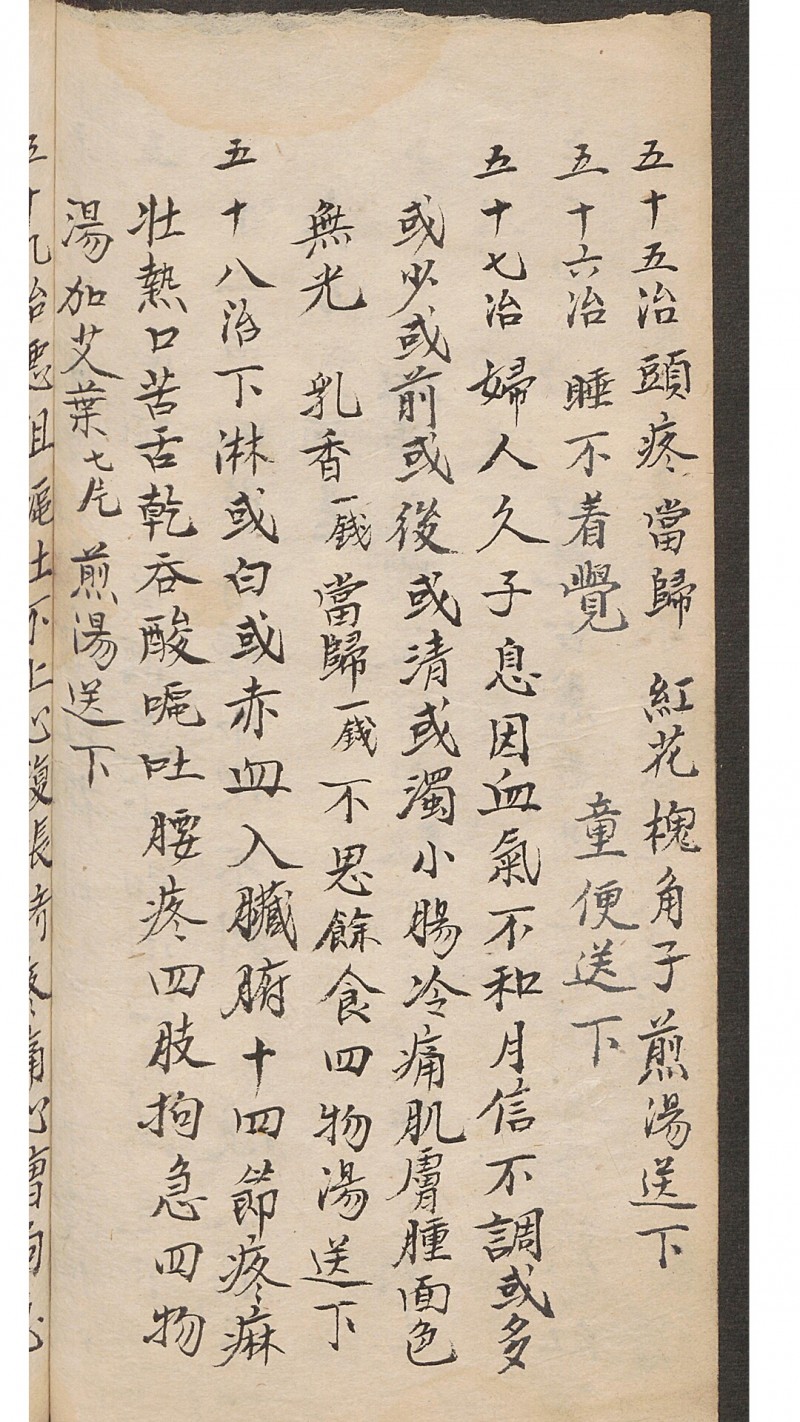 五十五治頭疼當歸 紅花槐角子煎湯送下
五十六治 睡不着覺 童便送下
五十七治 婦人久子息因血氣不和月信不調或多
或少或前或後或清或濁小腸冷痛肌膚腫面色
無光 乳香一錢當歸一錢不思餘食四物湯送下
五十八治下淋或白或赤血入臟腑十四節疼痳
壯熱口苦舌乾吞酸嘔吐腰疼四肢拘急四物
湯加艾葉七片 煎湯送下
五十九治惡阻嘔吐不上心腹長 疼痛心